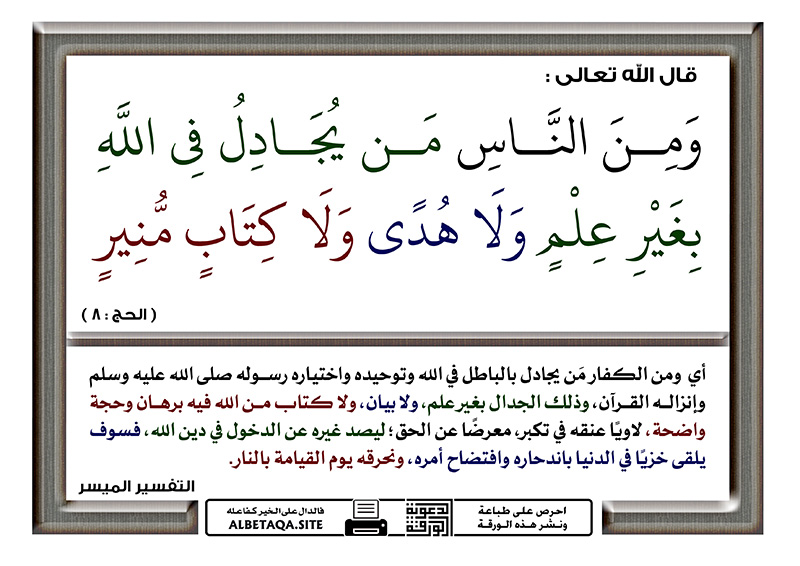 قال الله تعالى :
وَمِـنَ النَّـــاسِ مَـــن يُجَـــادِلُ فِي اللَّهِ
بِغَيْرِ عِلْمٍ وَلَا هُدًى وَلَا كِتَابٍ مُّنِيرٍ
( الحج : ٨ )
أي ومن الكفار مَن يجادل بالباطل في الله وتوحيده واختياره رسوله صلى الله عليه وسلم
وإنزاله القرآن، وذلك الجدال بغير علم، ولا بيان، ولا كتاب من الله فيه برهان وحجة
واضحة، لاويًا عنقه في تكبر، معرضًا عن الحق؛ ليصد غيره عن الدخول في دين الله، فسوف
يلقى خزيًا في الدنيا باندحاره وافتضاح أمره، ونحرقه يوم القيامة بالنار.
التفسير الميسر
احرص على طباعة
ونشر هذه الورقة
الورقة
الدعوية
فالدال على الخير كفاعله
ALBETAQA.SITE